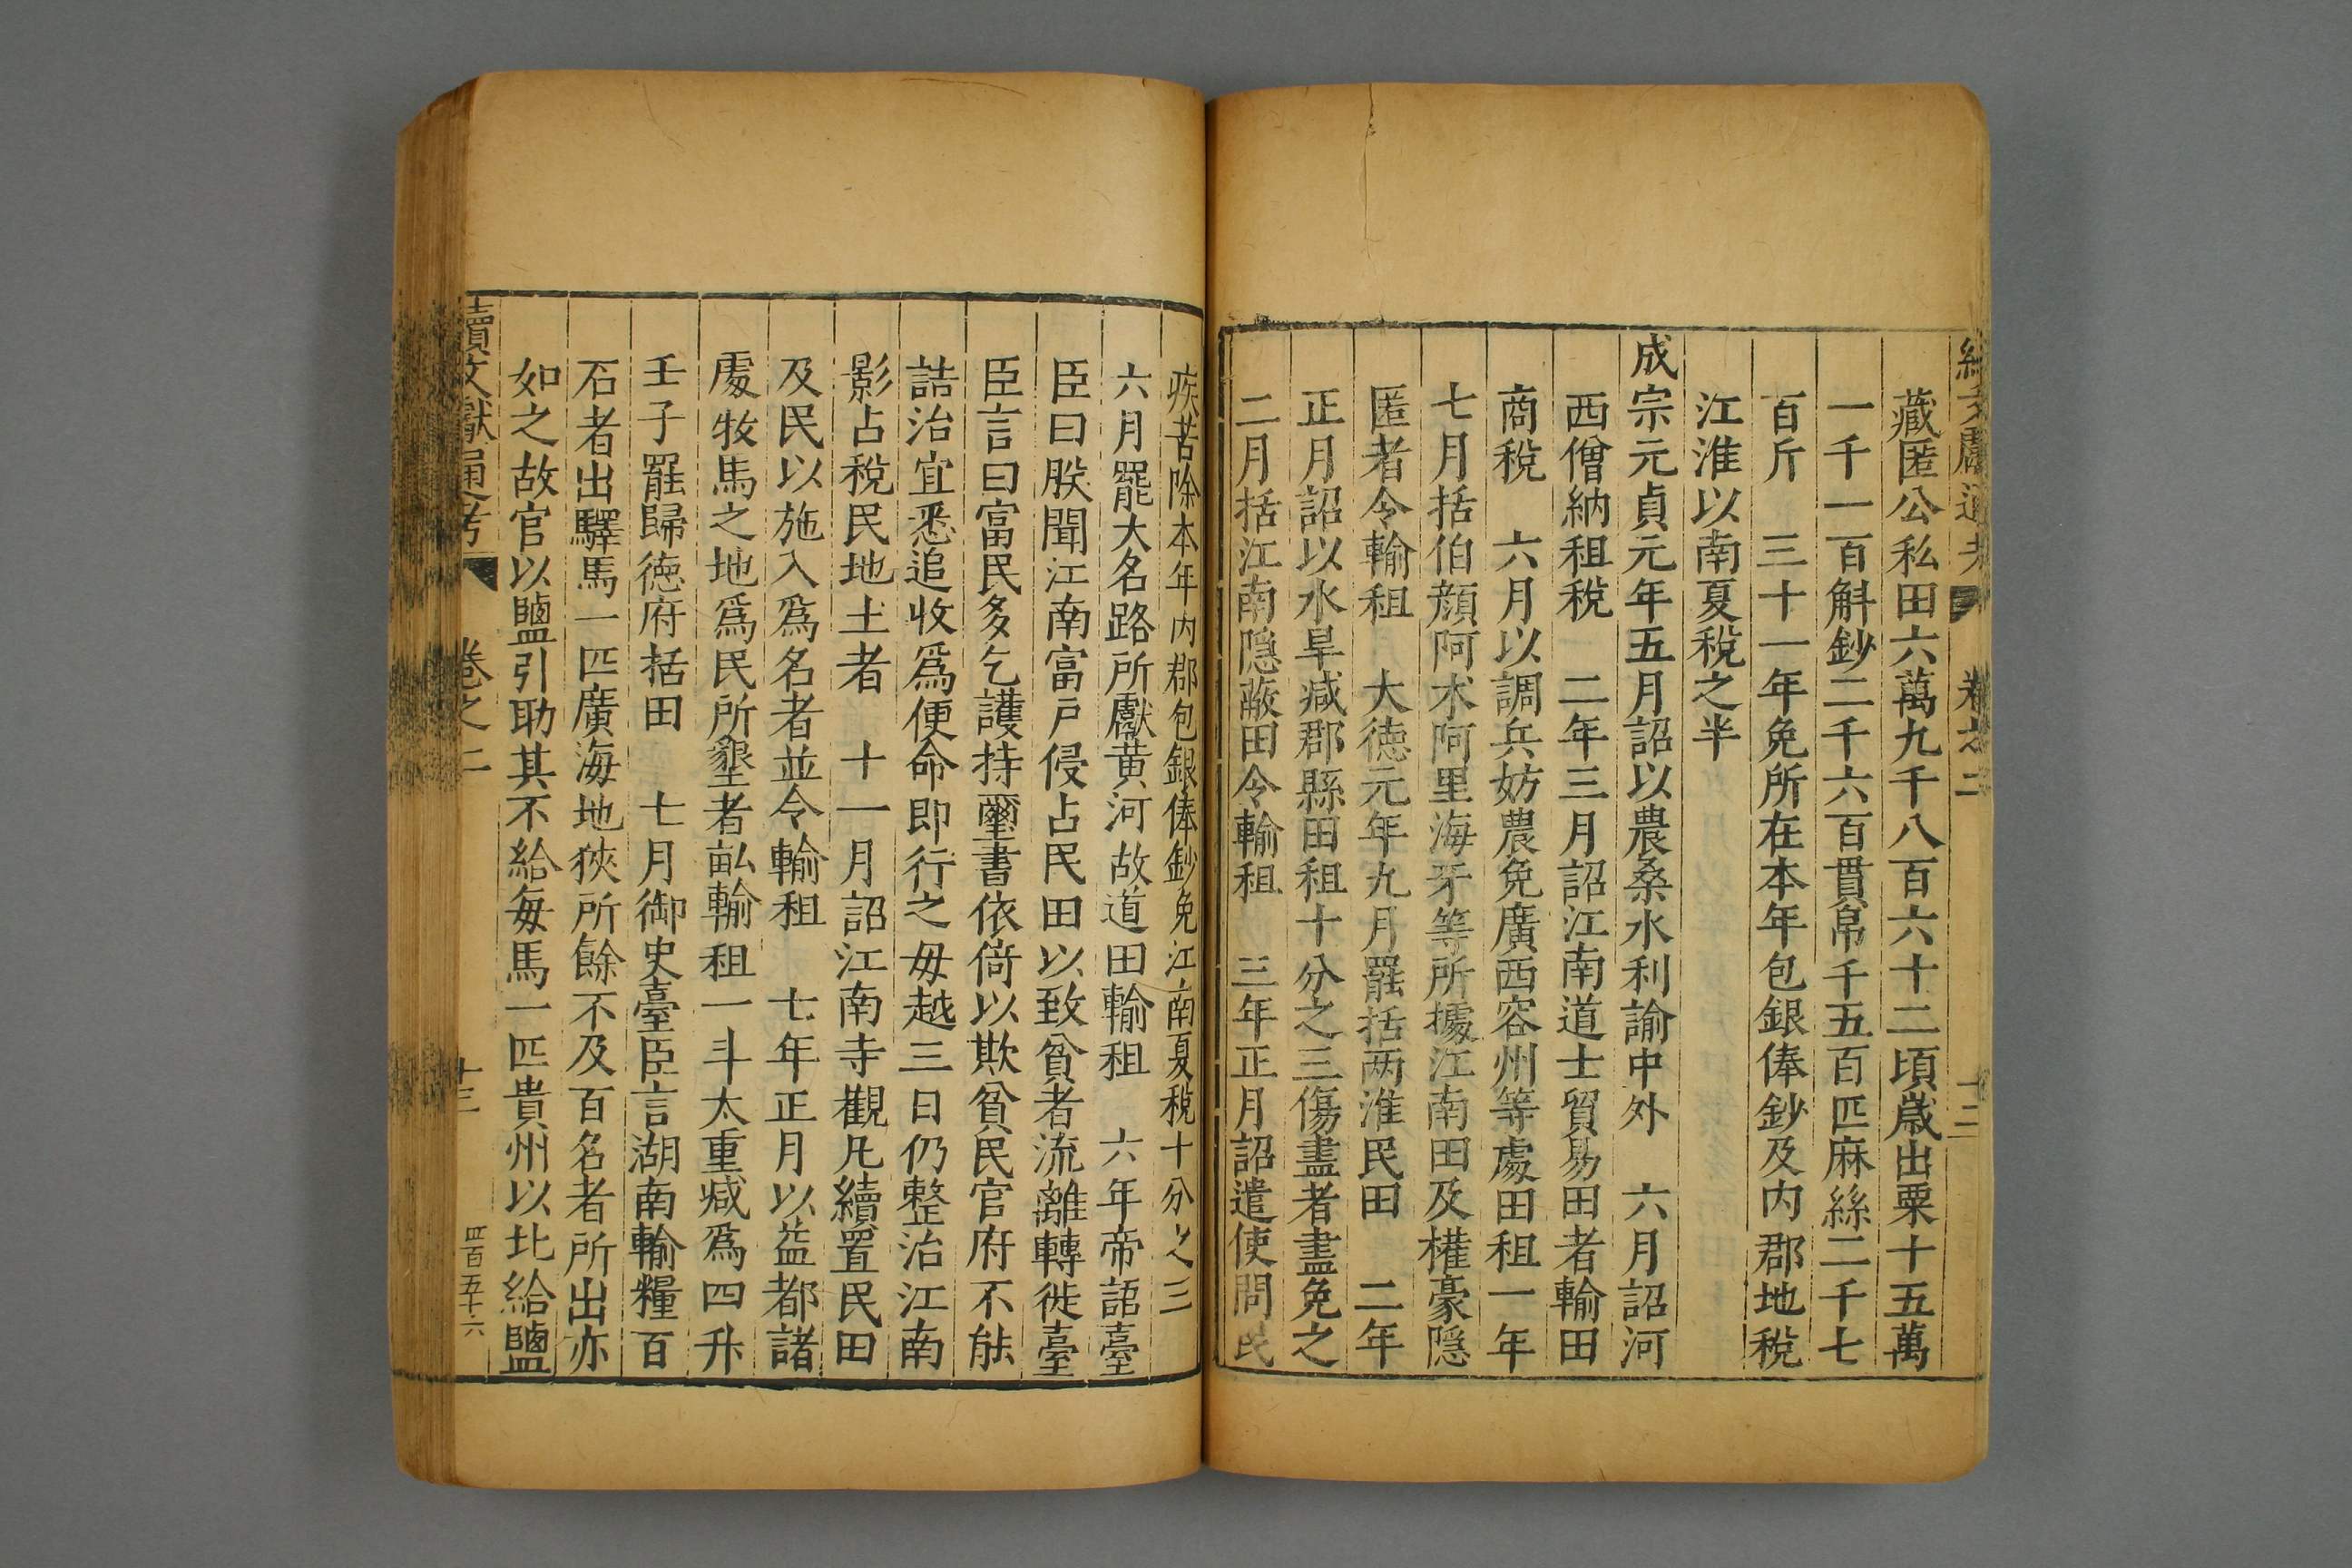 續文獻通考 卷之二 十二
藏匿公私田六萬九千八百六十二頃歳出粟十五萬
一千一百斛鈔二千六百貫帛千五百匹麻絲二千七
百斤 三十一年免所在本年包銀俸鈔及内郡地稅
江淮以南夏稅之半
成宗元貞元年五月詔以農桑水利諭中外 六月詔河
西僧納租稅 二年三月詔江南道士貿易田者輸田
商稅 六月以調兵妨農免廣西容州等處田租一年
七月括伯顏阿朮阿里海牙等所據江南田及權豪隱
匿者令輸租 大德元年九月罷括两淮民田 二年
正月詔以水旱减郡縣田租十分之三傷盡者盡免之
二月括江南隱蔽田令輸租 三年正月詔遣使問民
疾苦除本年内郡包銀俸鈔免江南夏稅十分之三
六月罷大名路所獻黄河故道田輸租 六年帝語臺
臣曰朕聞江南富戸侵占民田以致貧者流離轉徙臺
臣言曰富民多乞護持璽書依倚以欺貧民官府不能
詰治宜悉追收爲便命即行之毋越三日仍整治江南
影占稅民地土者 十一月詔江南寺觀凡續置民田
及民以施入爲名者並令輸租 七年正月以益都諸
處牧馬之地爲民所墾者畝輸租一斗太重减爲四升
壬子罷歸德府括田 七月御史臺臣言湖南輸糧百
石者出驛馬一匹廣海地狹所餘不及百名者所出亦
如之故官以鹽引助其不給每馬一匹貴州以北給鹽
續文獻通考 卷之二 十三 四百五十六